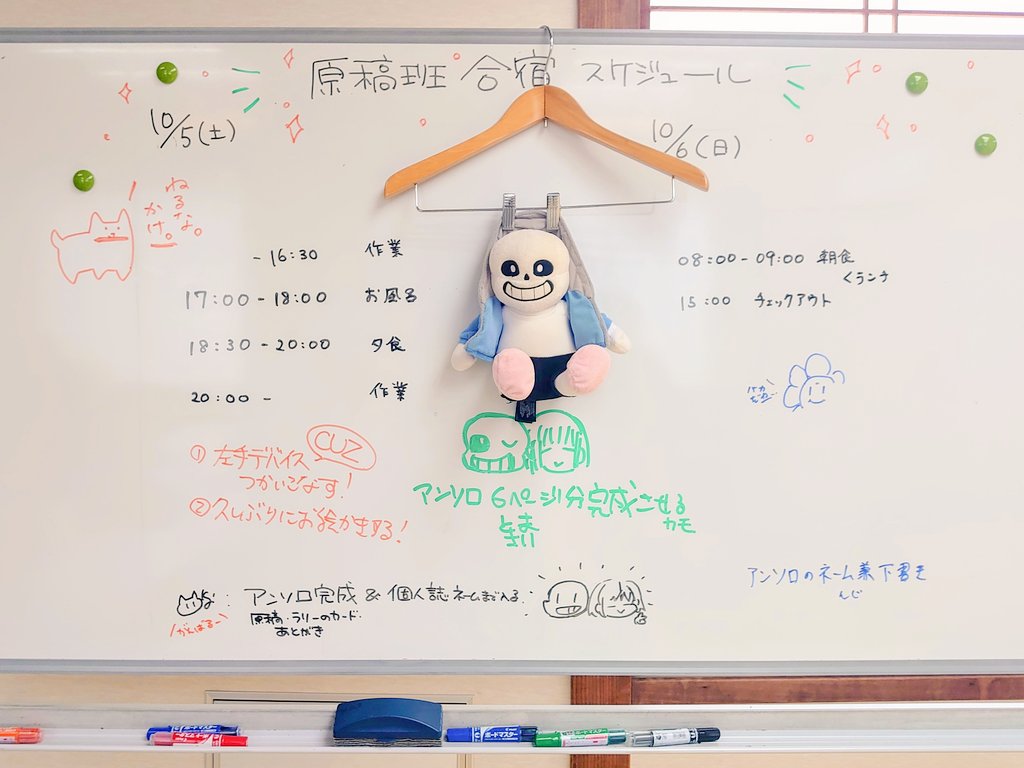 原稿班 合宿 スケジュール
10/5(土)
10/6(日)
ねるな。
かけ。
- 16:30 作業
17:00 - 18:00 お風呂
18:30 - 20:00 夕食
20:00 - 作業
08:00 - 09:00 朝食
くランチ
15:00 チェックアウト
① 左手デバイス
つかいこなす!
CUZ
② 久しぶりにお絵かきする!
アンソロ 6ページ分完成させる
カモ
とまと
な: アンソロ完成 & 個人誌ネームまで入る
原稿・ラリーのカード・
あとがき
がんばるー
アンソロのネーム兼下書き
んじ
ボードマスター
ボードマスター